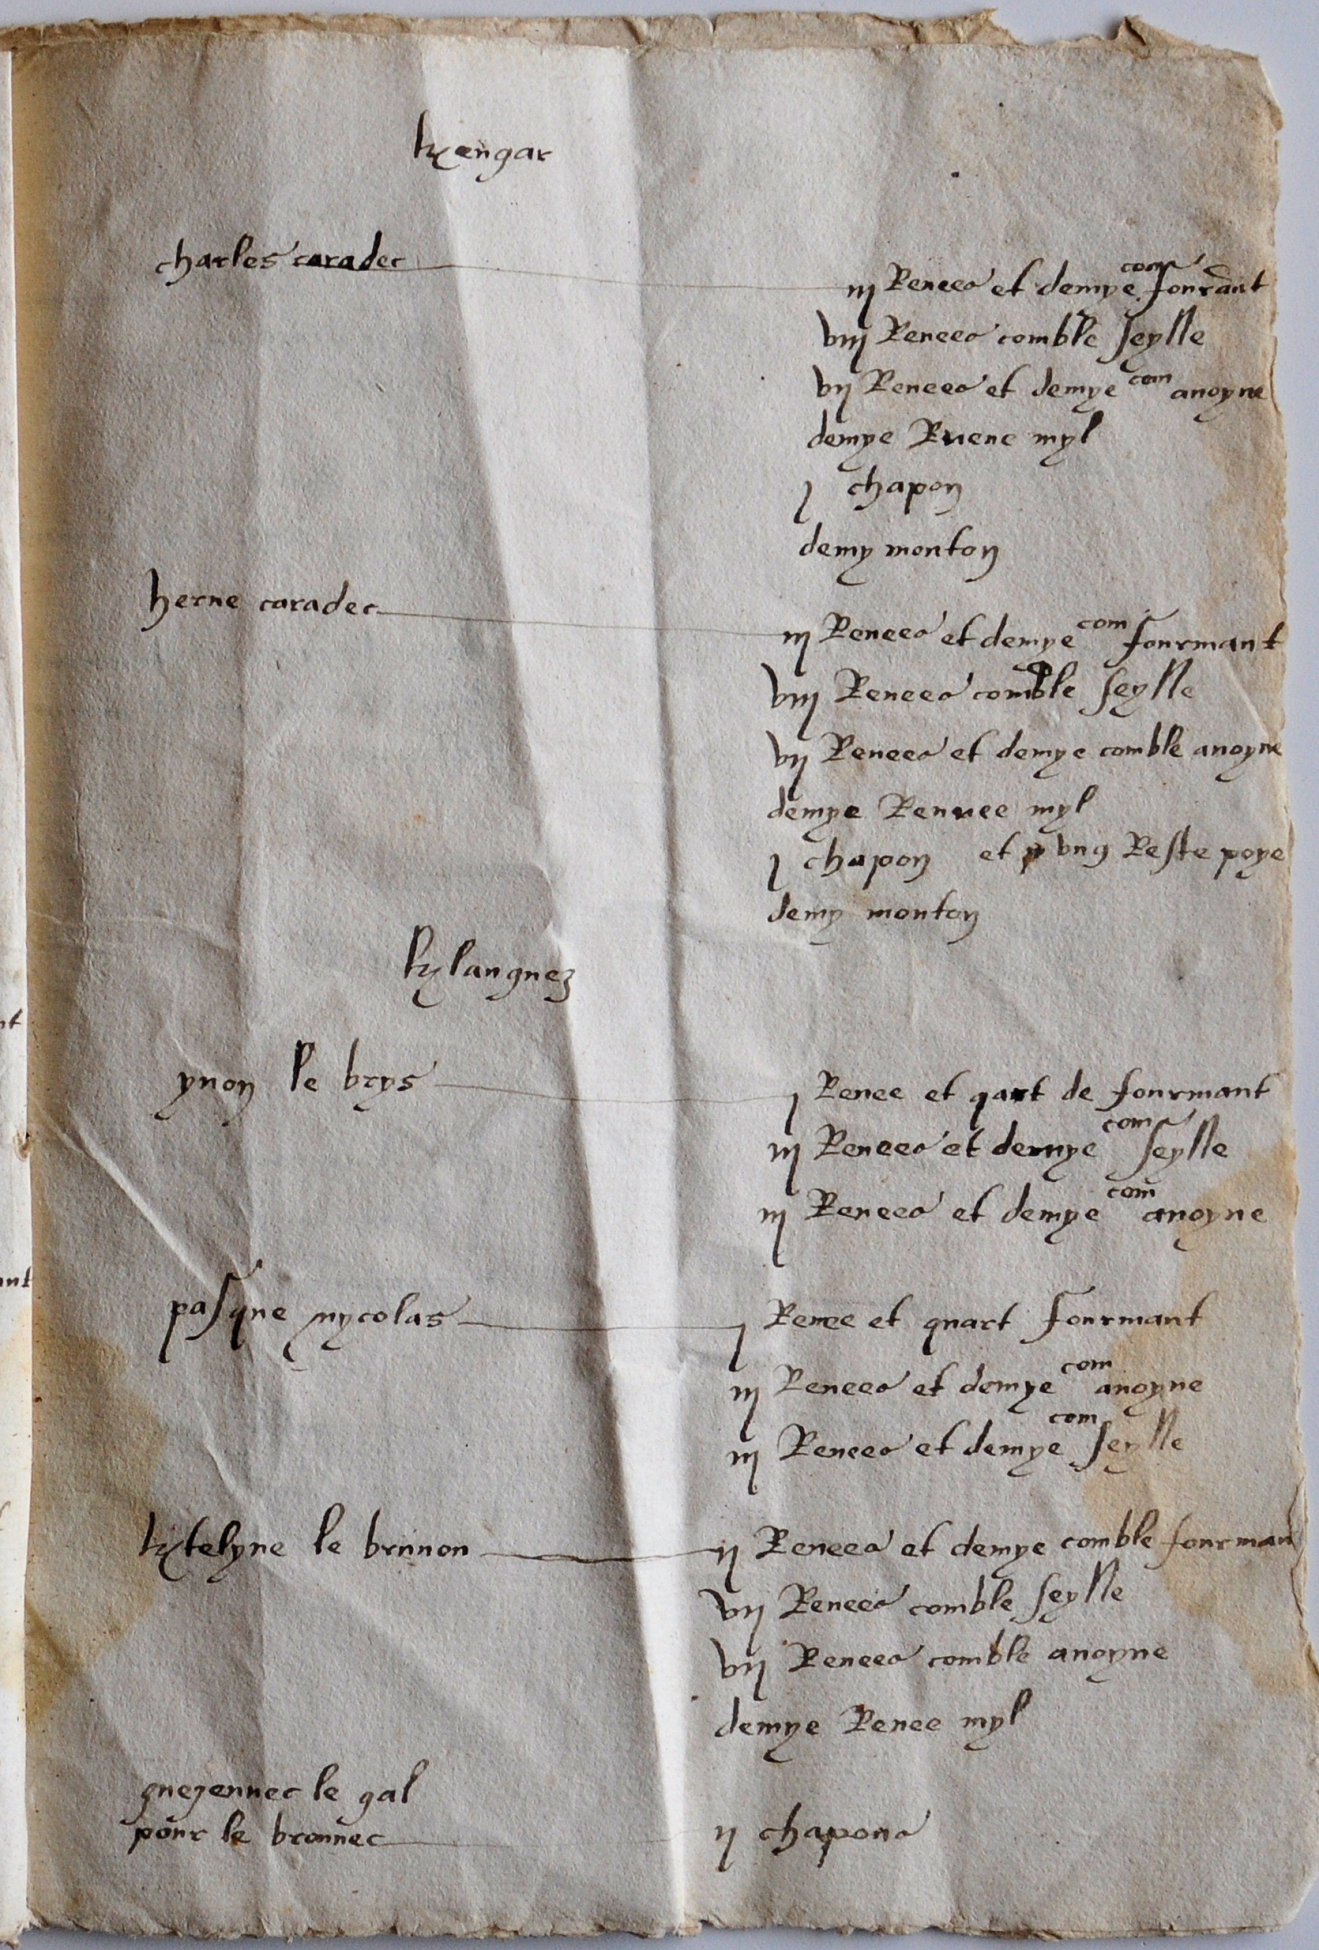 kxengar
charles caradec
iij Renees et demye com fourant
viij Renees comble seylle
vij Renees et demye com avoyne
demye Ruene myl
j chapon
demy monton
herve caradec
iij Renees et demye com fourmant
viij Renees comble seylle
vij Renees et demye comble avoyne
demye Renuee myl
j chapon et vng Reste poye
demy monton
kxlanguez
yvon le brys
j Renee et qart de fourmant
iij Renees et demye com seylle
iij Renees et demye com avoyne
pasque nycolas
j Renee et quart fourmant
iij Renees et demye com avoyne
iij Renees et demye com seylle
kxtelyne le brunon
ij Renees et demye comble fourman
vij Renees comble seylle
vij Renees comble avoyne
demye Renee myl
guezennec le gal
pour le bronnec
ij chapons